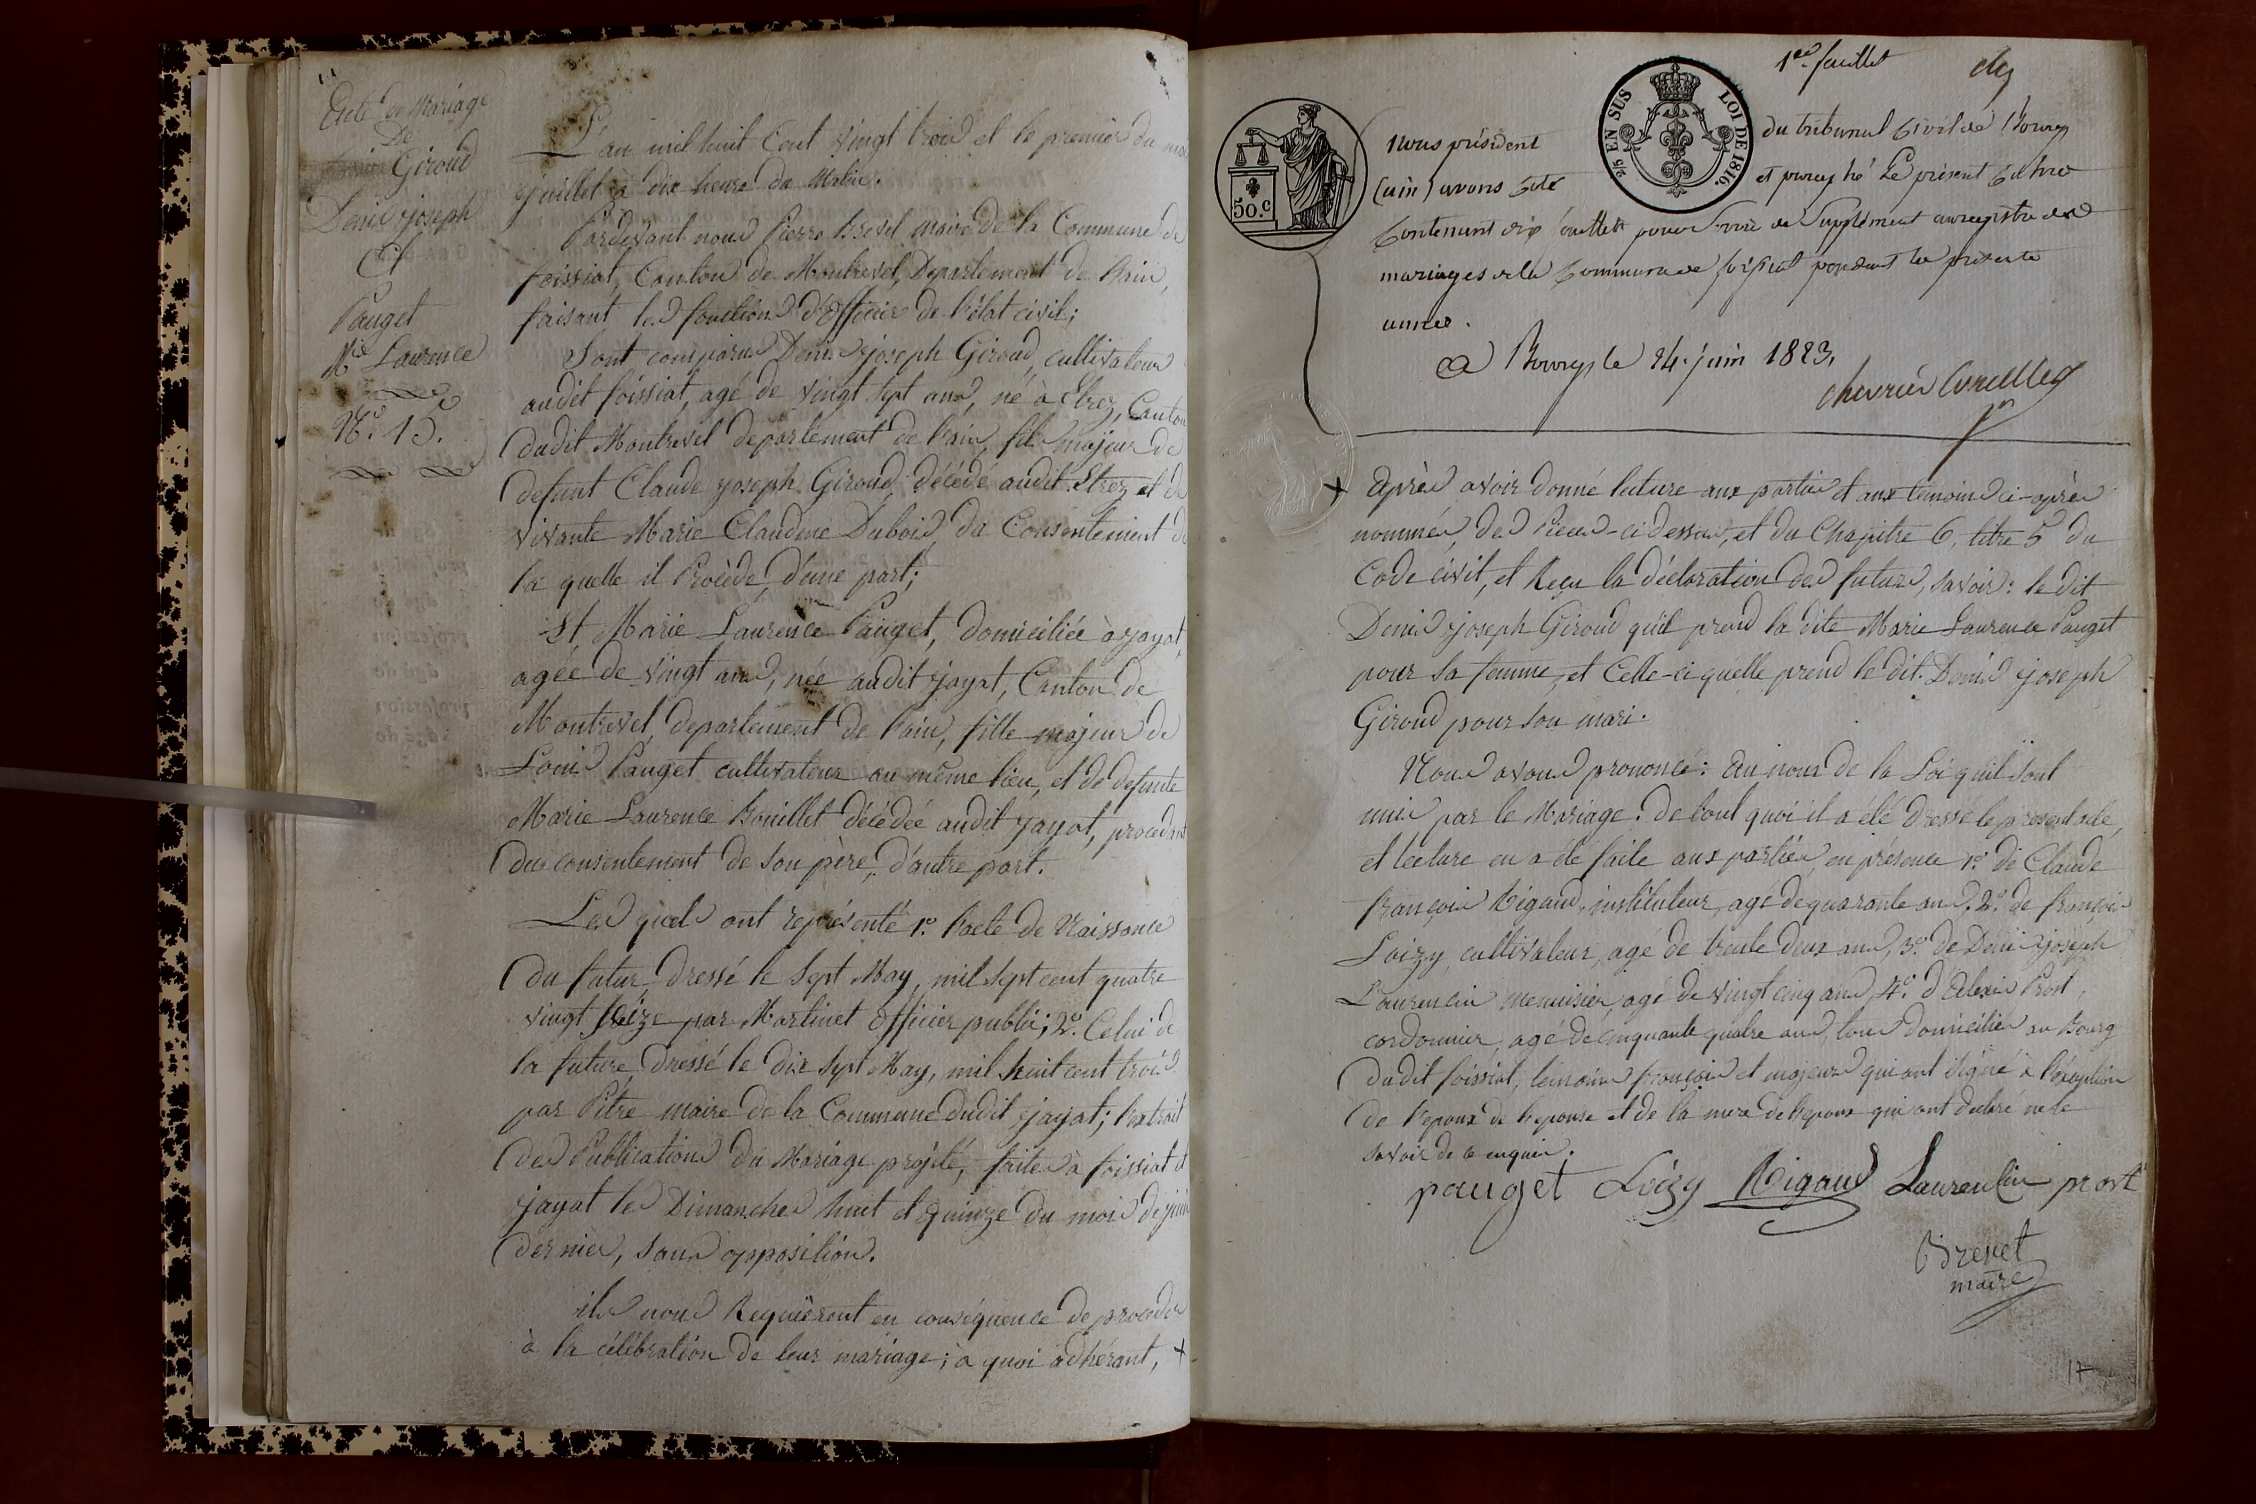 Acte de Mariage
De
Giroud
Denis joseph
Et
Pauget
Mie Laurence
N.o 15.
L'an mil huit Cent vingt trois et le premier du mois
juillet à dix heures du Matin.
Pardevant nous Pierre Brevet maire de la Commune de
foissiat, Canton de Montrevel, Departement de l'ain,
faisant les fonctions d'Officier de l'état civil;
Sont comparus Denis joseph Giroud, cultivateur
audit foissiat, agé de vingt sept ans, né à Etrez, Canton
dudit Montrevel departement de l'ain, fils majeur de
defunt Claude joseph Giroud, décédé audit Etrez et de
vivante Marie Claudine Dubois, du Consentement de
la quelle il Procède, d'une part;
Et Marie Laurence Pauget, domiciliée à jayat,
agée de vingt ans, née audit jayat, Canton de
Montrevel, departement de l'ain, fille majeur de
Louis Pauget cultivateur au même lieu, et de defunte
Marie Laurence Bouillet décédée audit jayat, procedant
du consentement de son père, d'autre part.
Les quels ont représenté 1.o l'acte de Naissance
du futur dressé le sept May, mil sept cent quatre
vingt seize par Martinet officier public; 2.o Celui de
la future dressé le dix sept May, mil huit cent trois
par Pitre maire de la Commune dudit jayat; l'extrait
des Publications du Mariage projeté, faites à foissiat et
jayat les Dimanches huit et quinze du mois de juin
dernier, sans opposition.
ils nous Requièrent en conséquence de proceder
à la célébration de leur mariage; à quoi adhérant, +
1er. feuillet
50.c
2/5 EN SUS
LOI DE 1816.
Nous président du tribunal Civil de Bourg
(ain) avons Coté et paraphé Le présent Cahier
Contenant dix feuillets pour servir de Supplément au registre des
mariages de la Commune de foissiat pendant la présente
année.
A Bourg le 24. juin 1823.
chevrier Corcelles
+ Après avoir donné lecture aux parties et aux temoins ci-après
nommés, des Pieces-ci dessus, et du Chapitre 6. titre 5 du
Code civil, et Reçu la déclaration des futurs, savoir: le dit
Denis joseph Giroud qu'il prend la dite Marie Laurence Pauget
pour sa femme, et Celle-ci quelle prend le dit. Denis joseph
Giroud pour son mari.
Nous avons prononcé: Au nom de la Loi quils sont
unis par le Mariage: de tout quoi il a été Dressé le présent acte
et lecture en a été faite aux parties, en présence 1.o de Claude
françois Rigaud, instituteur, agé de quarante ans, 2.o de françois
Loizy cultivateur, agé de trente deux ans, 3.o de Denis joseph
Laurencin menuisier, agé de vingt cinq ans, 4.o d'Alexis Prost,
cordonnier, agé de cinquante quatre ans, tous domiciliés au Bourg
dudit foissiat, temoins françois et majeurs qui ont signé à l'éxeption
de l'epoux de l'epouse et de la mere de l'epoux qui ont declaré ne le
savoir de ce enquis.
pauget Loizy Rigaud Laurencin prost
Brevet
maire
17